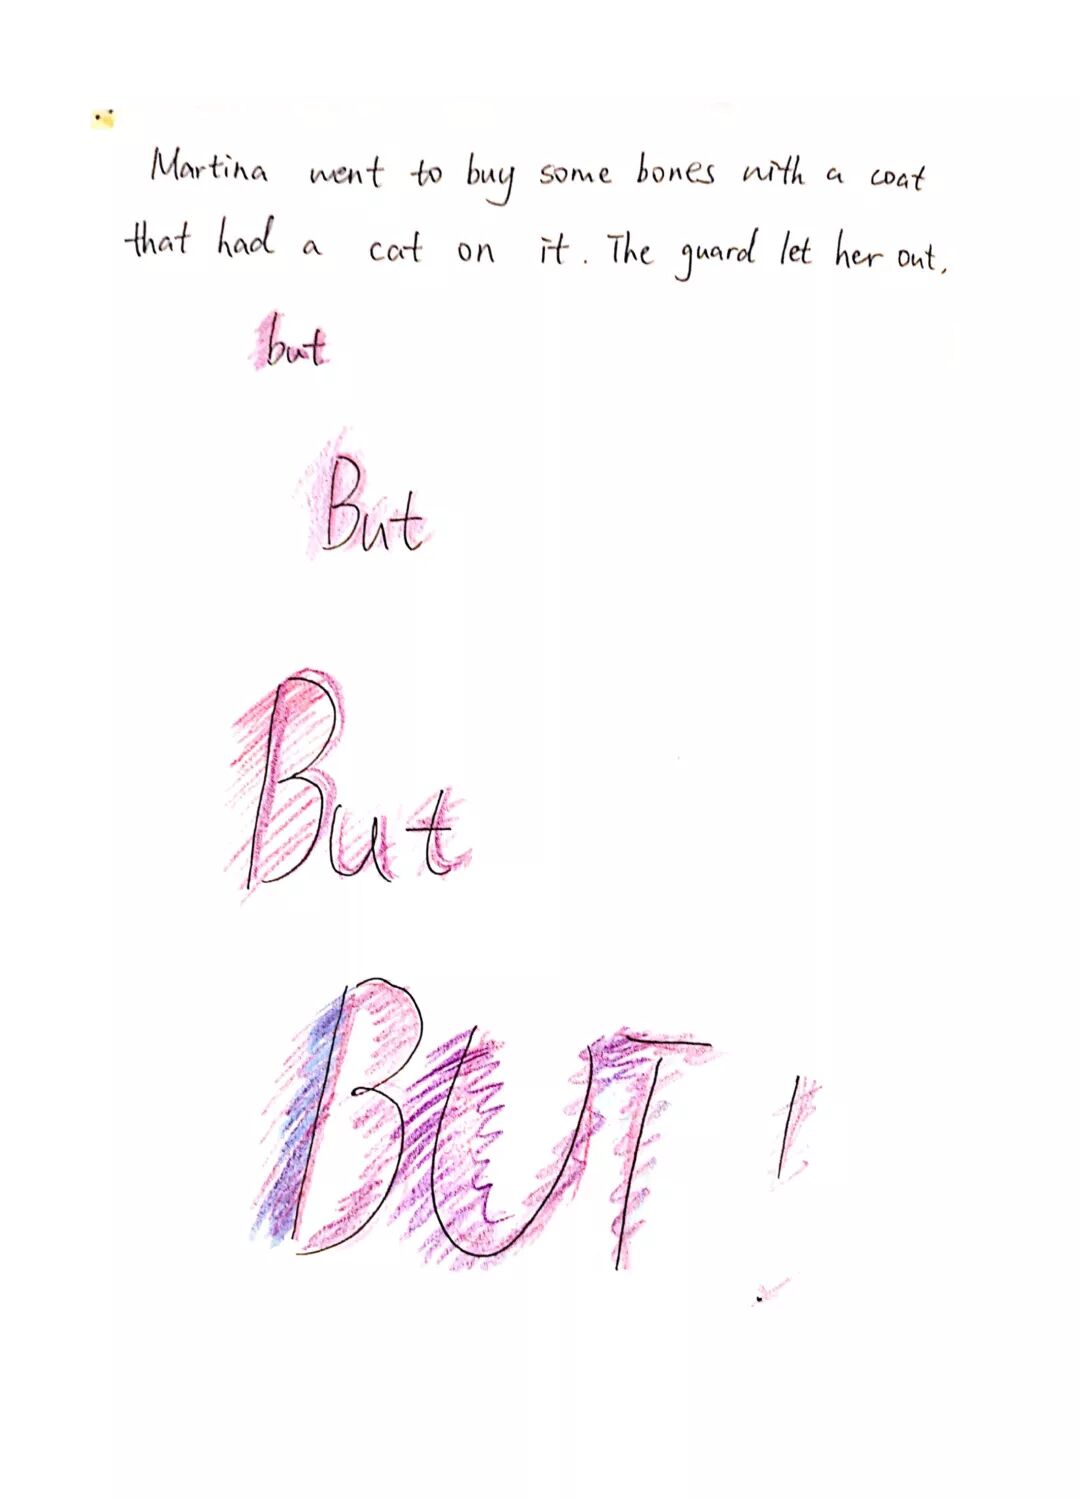 Martina went to buy some bones with a coat
that had a cat on it. The guard let her out,
but
But
But
BUT!